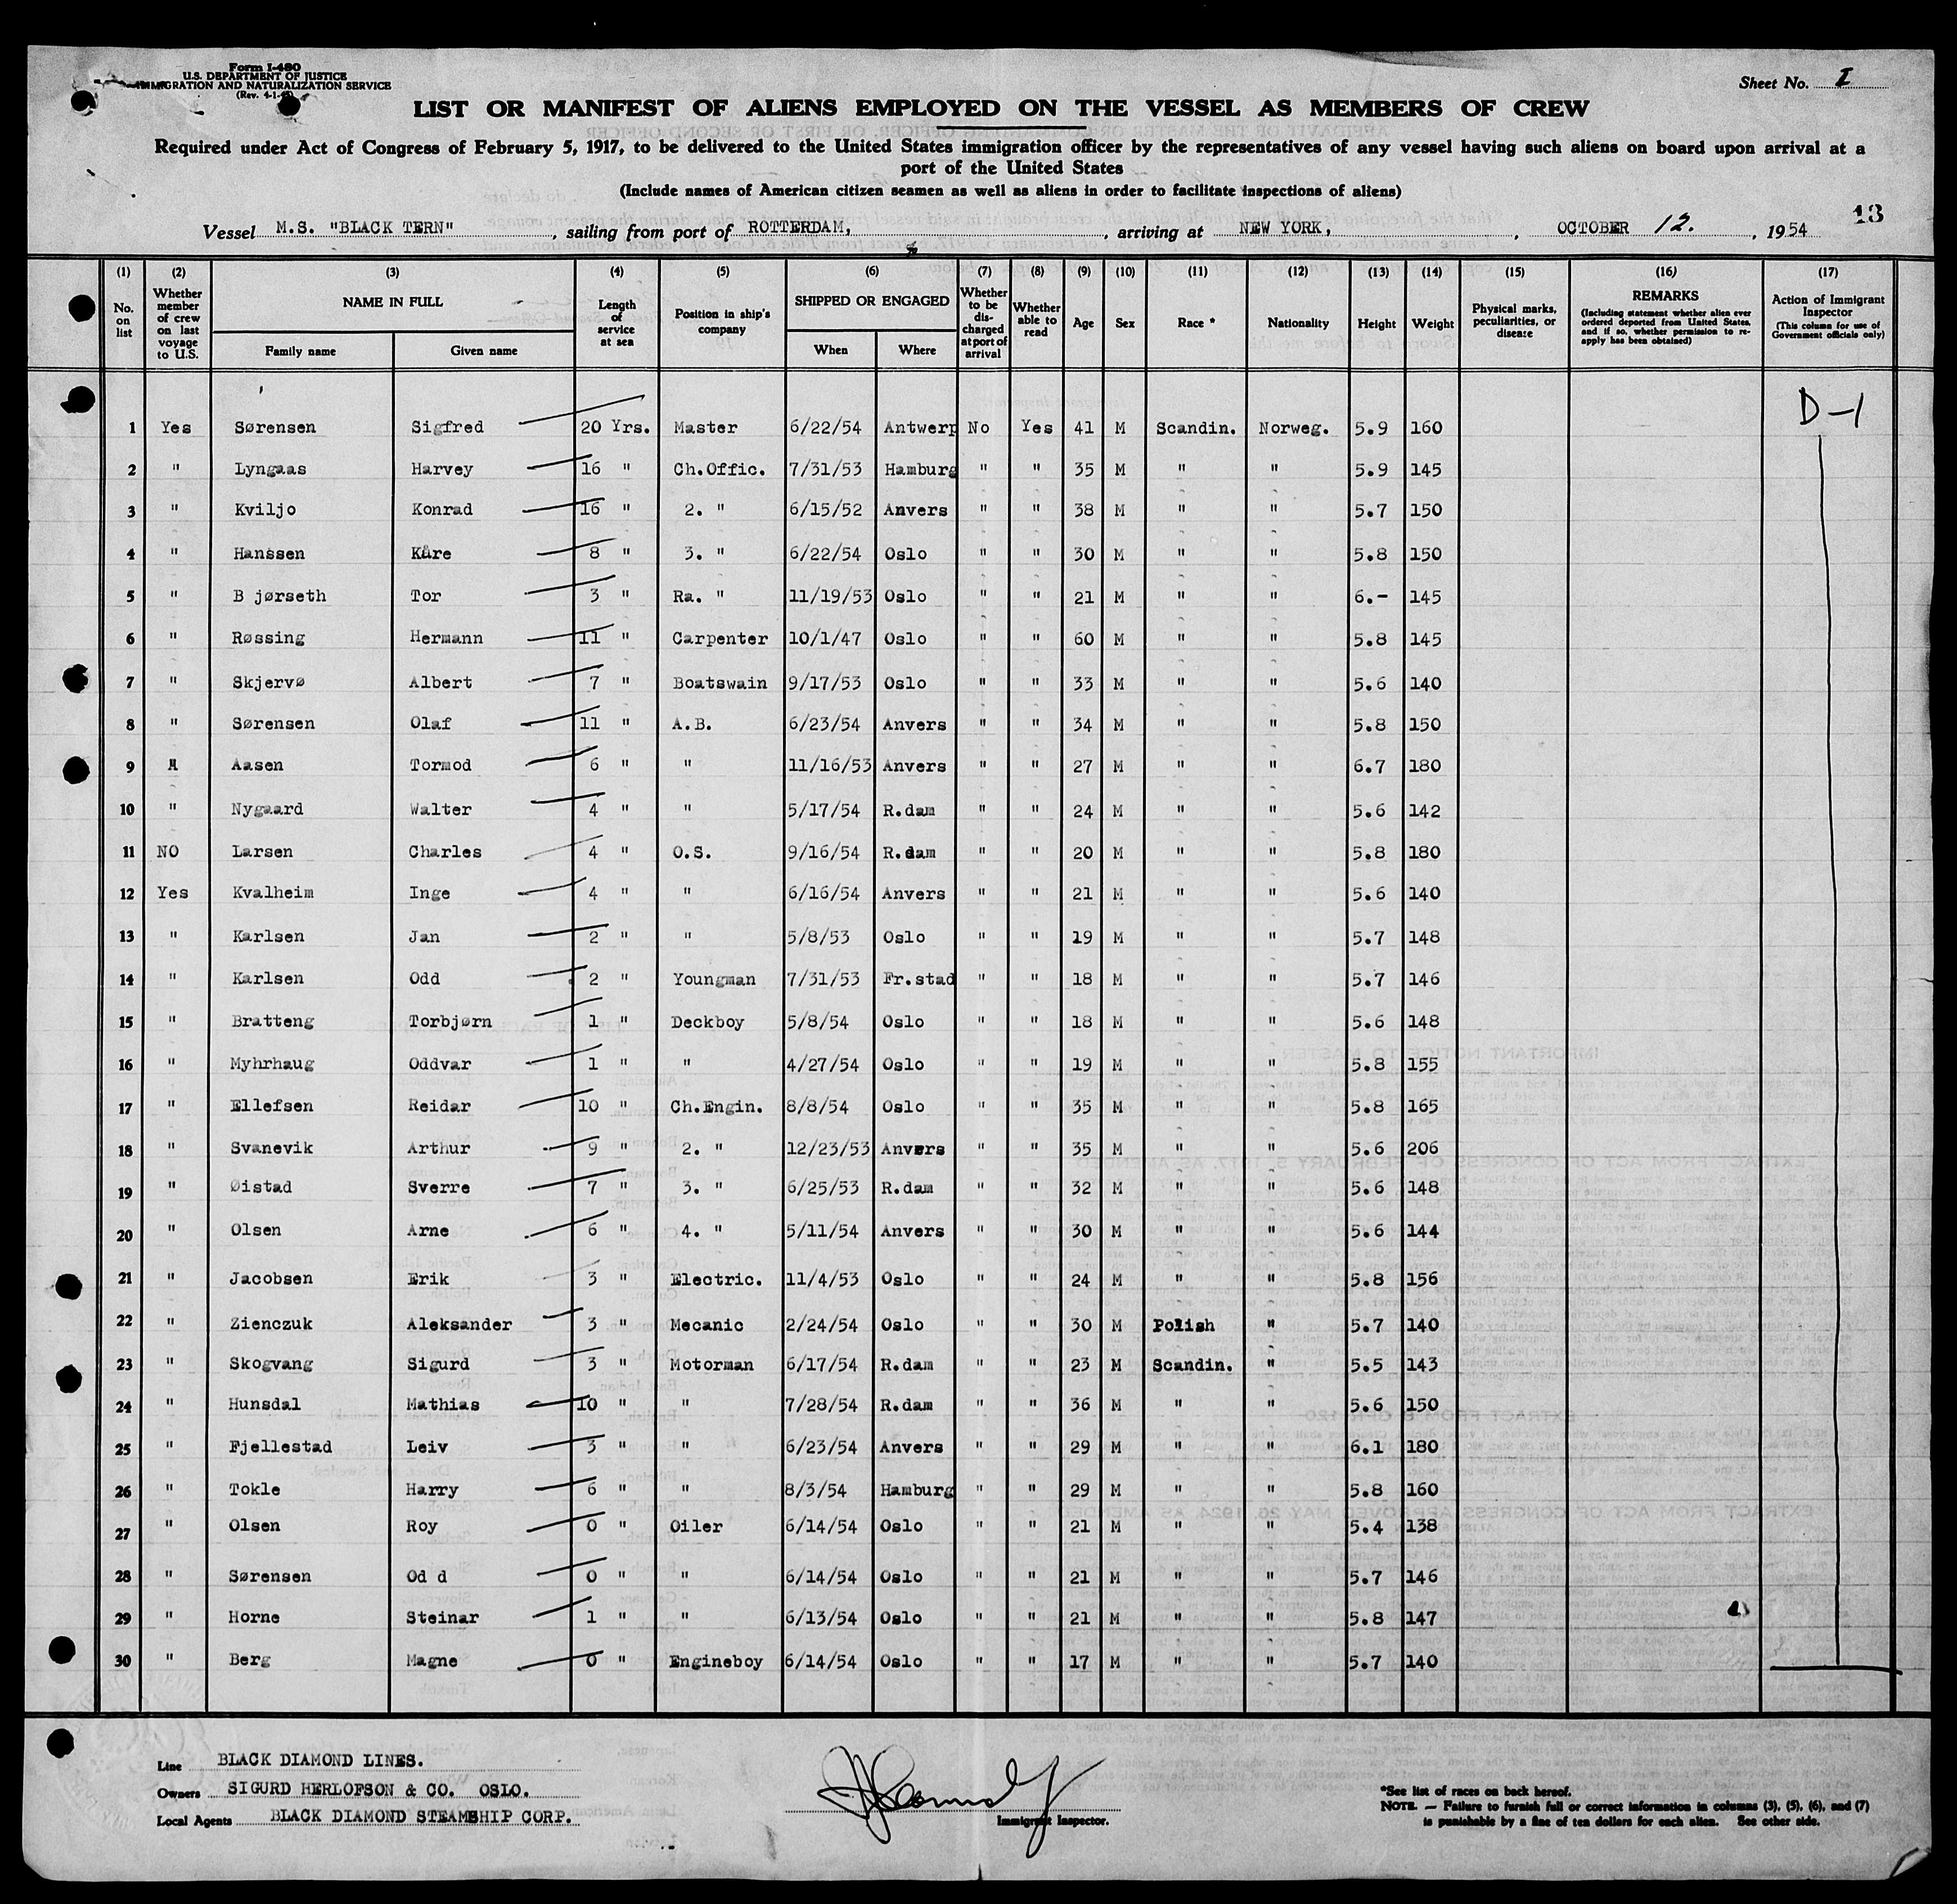 Form I-480
U.S. DEPARTMENT OF JUSTICE
IMMIGRATION AND NATURALIZATION SERVICE
(Rev. 4-1-
Sheet No. I
LIST OR MANIFEST OF ALIENS EMPLOYED ON THE VESSEL AS MEMBERS OF CREW
Required under Act of Congress of February 5, 1917, to be delivered to the United States immigration officer by the representatives of any vessel having such aliens on board upon arrival at a
port of the United States
(Include names of American citizen seamen as well as aliens in order to facilitate inspections of aliens)
13
Vessel M.S. "BLACK TERN" , sailing from port of ROTTERDAM, , arriving at NEW YORK, , OCTOBER 12. , 1954
(1) (2) (3) (4) (5) (6) (7) (8) (9) (10) (11) (12) (13) (14) (15) (16) (17)
No. on list Whether member of crew on last voyage to U.S. NAME IN FULL Family name Given name Length of service at sea Position in ship's company SHIPPED OR ENGAGED When Where Whether to be discharged at port of arrival Whether able to read Age Sex Race * Nationality Height Weight Physical marks, peculiarities, or disease REMARKS (Including statement whether alien ever ordered deported from United States, and if so, whether permission to re-apply has been obtained) Action of Immigrant Inspector (This column for use of Government officials only)
D-1
1 Yes Sørensen Sigfred 20 Yrs. Master 6/22/54 Antwerp No Yes 41 M Scandin. Norweg. 5.9 160
2 " Lyngaas Harvey 16 " Ch.Offic. 7/31/53 Hamburg " " 35 M " " 5.9 145
3 " Kviljo Konrad 16 " 2. " 6/15/52 Anvers " " 38 M " " 5.7 150
4 " Hanssen Kåre 8 " 3. " 6/22/54 Oslo " " 30 M " " 5.8 150
5 " B jørseth Tor 3 " Ra. " 11/19/53 Oslo " " 21 M " " 6.- 145
6 " Røssing Hermann 11 " Carpenter 10/1/47 Oslo " " 60 M " " 5.8 145
7 " Skjervø Albert 7 " Boatswain 9/17/53 Oslo " " 33 M " " 5.6 140
8 " Sørensen Olaf 11 " A.B. 6/23/54 Anvers " " 34 M " " 5.8 150
9 " Aasen Tormod 6 " " 11/16/53 Anvers " " 27 M " " 6.7 180
10 " Nygaard Walter 4 " " 5/17/54 R.dam " " 24 M " " 5.6 142
11 NO Larsen Charles 4 " O.S. 9/16/54 R.dam " " 20 M " " 5.8 180
12 Yes Kvalheim Inge 4 " " 6/16/54 Anvers " " 21 M " " 5.6 140
13 " Karlsen Jan 2 " " 5/8/53 Oslo " " 19 M " " 5.7 148
14 " Karlsen Odd 2 " Youngman 7/31/53 Fr.stad " " 18 M " " 5.7 146
15 " Bratteng Torbjørn 1 " Deckboy 5/8/54 Oslo " " 18 M " " 5.6 148
16 " Myhrhaug Oddvar 1 " " 4/27/54 Oslo " " 19 M " " 5.8 155
17 " Ellefsen Reidar 10 " Ch.Engin. 8/8/54 Oslo " " 35 M " " 5.8 165
18 " Svanevik Arthur 9 " 2. " 12/23/53 Anvers " " 35 M " " 5.6 206
19 " Øistad Sverre 7 " 3. " 6/25/53 R.dam " " 32 M " " 5.6 148
20 " Olsen Arne 6 " 4. " 5/11/54 Anvers " " 30 M " " 5.6 144
21 " Jacobsen Erik 3 " Electric. 11/4/53 Oslo " " 24 M " " 5.8 156
22 " Zienczuk Aleksander 3 " Mecanic 2/24/54 Oslo " " 30 M Polish " 5.7 140
23 " Skogvang Sigurd 3 " Motorman 6/17/54 R.dam " " 23 M Scandin. " 5.5 143
24 " Hunsdal Mathias 10 " " 7/28/54 R.dam " " 36 M " " 5.6 150
25 " Fjellestad Leiv 3 " " 6/23/54 Anvers " " 29 M " " 6.1 180
26 " Tokle Harry 6 " " 8/3/54 Hamburg " " 29 M " " 5.8 160
27 " Olsen Roy 0 " Oiler 6/14/54 Oslo " " 21 M " " 5.4 138
28 " Sørensen Od d 0 " " 6/14/54 Oslo " " 21 M " " 5.7 146
29 " Horne Steinar 1 " " 6/13/54 Oslo " " 21 M " " 5.8 147
30 " Berg Magne 0 " Engineboy 6/14/54 Oslo " " 17 M " " 5.7 140
Line BLACK DIAMOND LINES.
Owners SIGURD HERLOFSON & CO. OSLO.
Local Agents BLACK DIAMOND STEAMSHIP CORP.
Immigrant Inspector.
*See list of races on back hereof.
NOTE. — Failure to furnish full or correct information in columns (3), (5), (6), and (7)
is punishable by a fine of ten dollars for each alien. See other side.